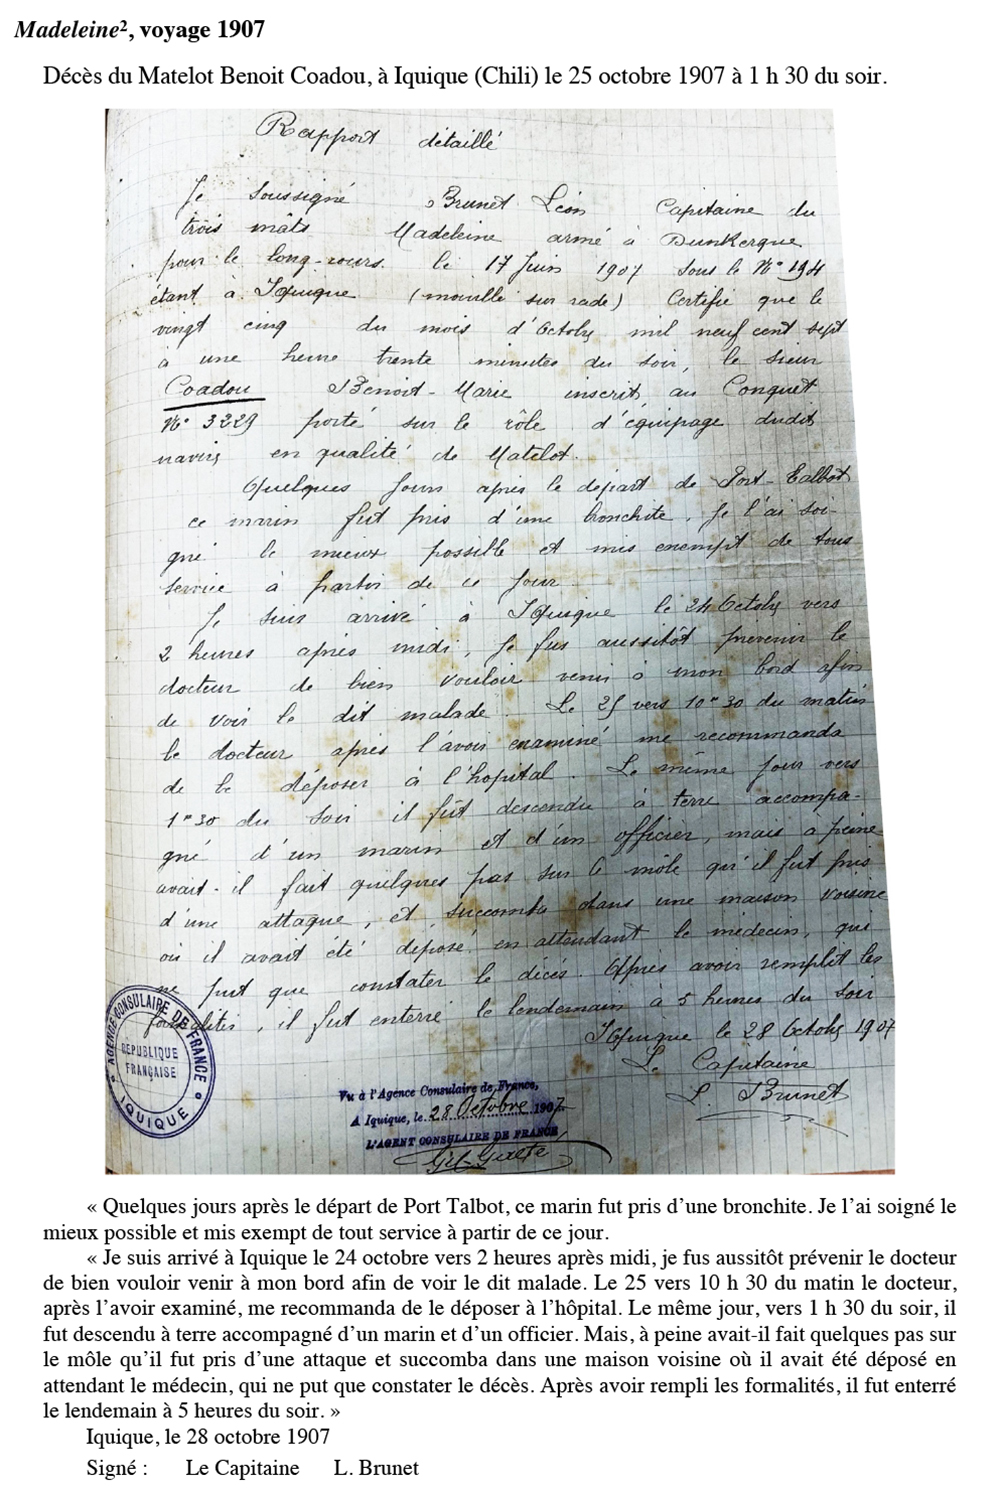 Madeleine², voyage 1907
Décès du Matelot Benoit Coadou, à Iquique (Chili) le 25 octobre 1907 à 1 h 30 du soir.
Rapport détaillé
Je soussigné Brunet Léon Capitaine du
trois mâts Madeleine armé à Dunkerque
pour le long-cours. le 17 Juin 1907 sous le N° 194
étant à Iquique (mouillé sur rade) Certifie que le
vingt cinq du mois d'Octobre mil neuf cent sept
à une heure trente minutes du soir, le sieur
Coadou Benoit-Marie inscrit au Conquet
N° 3229 porté sur le rôle d'équipage dudit
navire en qualité de Matelot.
Quelques jours après le départ de Port-Talbot
ce marin fut pris d'une bronchite. Je l'ai soi-
gné le mieux possible et mis exempt de tous
service à partir de ce jour
Je suis arrivé à Iquique le 24 Octobre vers
2 heures après midi, Je fus aussitôt prévenir le
docteur de bien vouloir venir à mon bord afin
de voir le dit malade. Le 25 vers 10h 30 du matin
le docteur après l'avoir examiné me recommanda
de le déposer à l'hopital. Le même jour vers
1h 30 du soir il fût descendu à terre accompa-
gné d'un marin et d'un officier, mais à peine
avait-il fait quelques pas sur le môle qu'il fut pris
d'une attaque, et succomba dans une maison voisine
où il avait été déposé en attendant le médecin, qui
ne put que constater le décès. Après avoir remplit les
formalités, il fut enterré le lendemain à 5 heures du soir
Iquique le 28 Octobre 1907
Le Capitaine
L. Brunet
AGENCE CONSULAIRE DE FRANCE
RÉPUBLIQUE
FRANÇAISE
IQUIQUE
Vu à l'Agence Consulaire de France,
A Iquique, le 28 Octobre 1907
L'AGENT CONSULAIRE DE FRANCE,
« Quelques jours après le départ de Port Talbot, ce marin fut pris d'une bronchite. Je l'ai soigné le
mieux possible et mis exempt de tout service à partir de ce jour.
« Je suis arrivé à Iquique le 24 octobre vers 2 heures après midi, je fus aussitôt prévenir le docteur
de bien vouloir venir à mon bord afin de voir le dit malade. Le 25 vers 10 h 30 du matin le docteur,
après l'avoir examiné, me recommanda de le déposer à l'hôpital. Le même jour, vers 1 h 30 du soir, il
fut descendu à terre accompagné d'un marin et d'un officier. Mais, à peine avait-il fait quelques pas sur
le môle qu'il fut pris d'une attaque et succomba dans une maison voisine où il avait été déposé en
attendant le médecin, qui ne put que constater le décès. Après avoir rempli les formalités, il fut enterré
le lendemain à 5 heures du soir. »
Iquique, le 28 octobre 1907
Signé : Le Capitaine L. Brunet